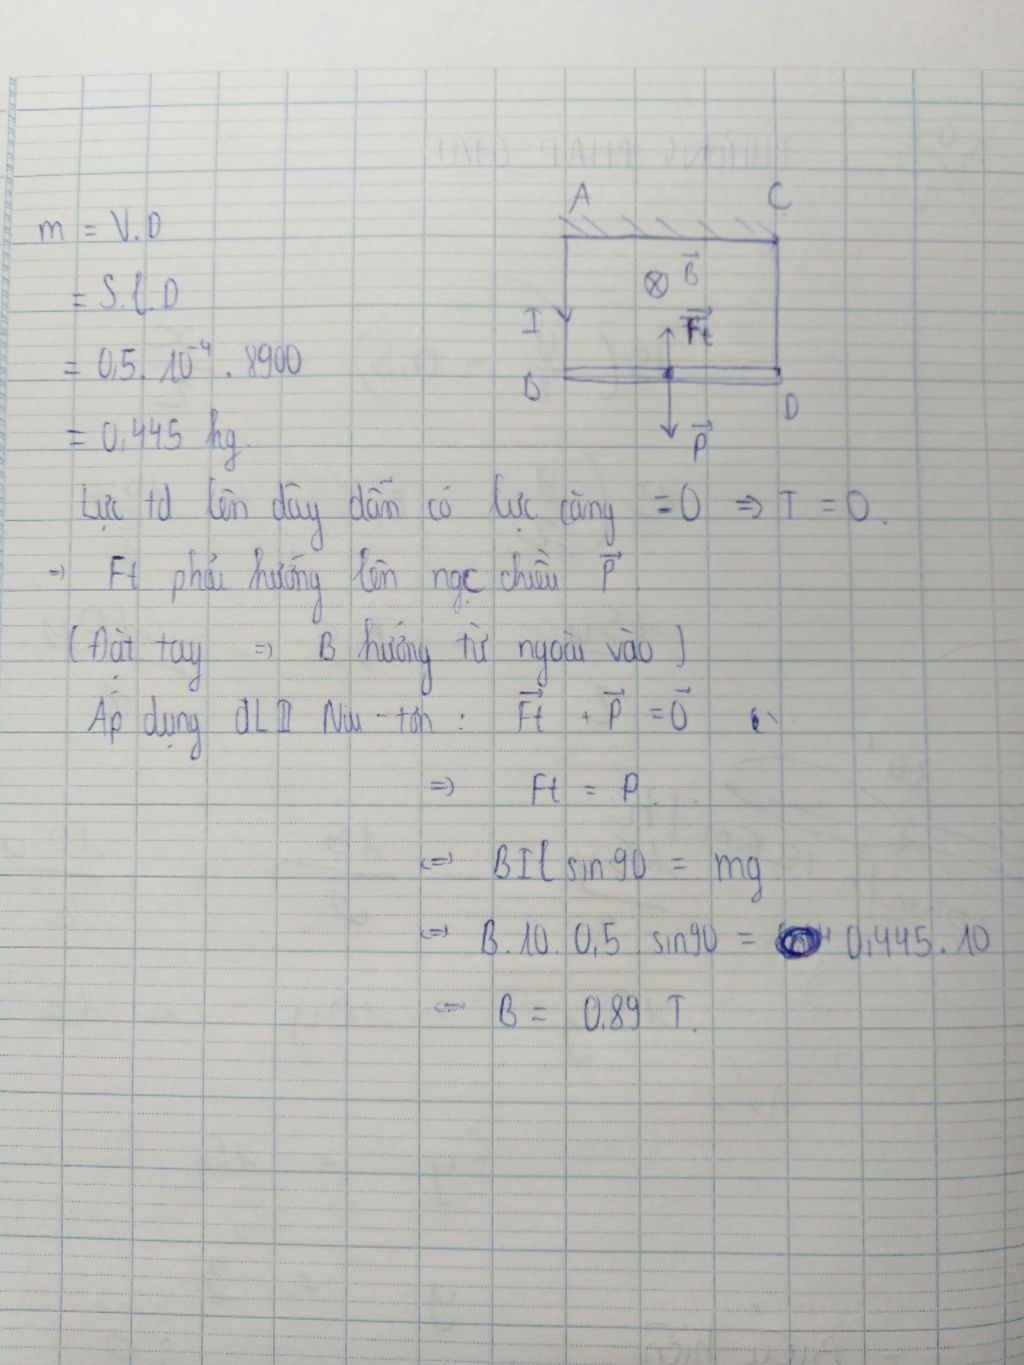 A C
m = V.D
= S.l.D
⊗ B⃗
= 0,5. 10⁻⁴ . 8900
I
F⃗t
D
= 0,445 kg.
P⃗
Lực td lên dây dẫn có lực căng = 0 ⇒ T = 0.
⇒ Ft phải hướng lên ngc chiều P⃗
(Đặt tay ⇒ B hướng từ ngoài vào)
Áp dụng ĐL II Niu-tơn : F⃗t + P⃗ = 0⃗
⇒ Ft = P.
⇔ BIl sin90 = mg
⇔ B.10. 0,5. sin90 = 0,445.10
⇔ B = 0,89 T.